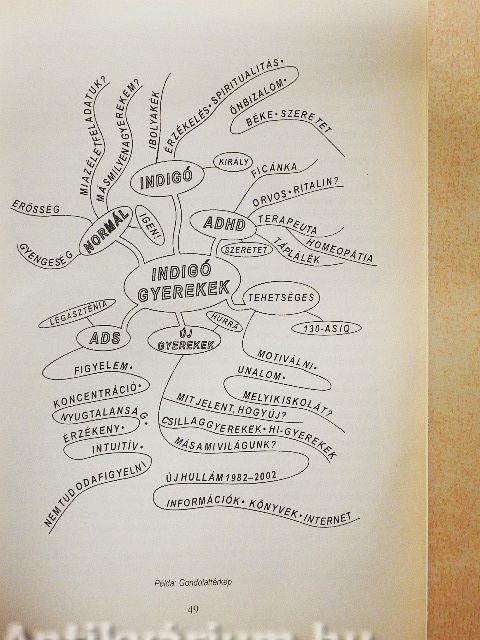 MI AZ ÉLETFELADATUK?
MÁS MILYEN A GYEREKEM?
IBOLYAKÉK
ÉRZÉKELÉS • SPIRITUALITÁS •
ÖNBIZALOM •
BÉKE • SZERETET
INDIGÓ
KIRÁLY
FICÁNKA
ORVOS • RITALIN?
ERŐSSÉG
NORMÁL
IGEN!
ADHD
TERAPEUTA
HOMEOPÁTIA
TÁPLÁLÉK
SZERETET
GYENGESÉG
INDIGÓ
GYEREKEK
TEHETSÉGES
130-AS IQ
LEGASZTÉNIA
ADS
ÚJ
GYEREKEK
HURRÁ
FIGYELEM •
KONCENTRÁCIÓ •
NYUGTALANSÁG •
ÉRZÉKENY •
INTUITÍV •
NEM TUD ODAFIGYELNI
MOTIVÁLNI •
UNALOM •
MELYIK ISKOLÁT?
MIT JELENT, HOGY ÚJ?
CSILLAGGYEREKEK • HI-GYEREKEK
MÁS A MI VILÁGUNK?
ÚJ HULLÁM 1982–2002
INFORMÁCIÓK • KÖNYVEK • INTERNET
Példa: Gondolattérkép
49
Antikvárium.hu